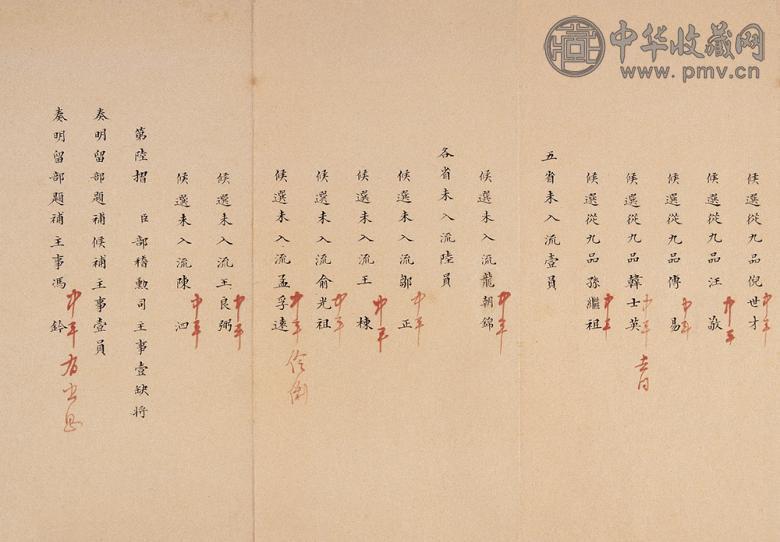 中华收藏网
www.pmv.cn
候選從九品倪世才 中年
候選從九品汪 敬 中平
候選從九品傅 易 中年
候選從九品韓士英 中年
候選從九品孫繼祖 中平
五省未入流壹員
候選未入流龍朝錦 中年
各省未入流陸員
候選未入流鄒 正 中年
候選未入流王 棟 中平
候選未入流俞光祖 中年
候選未入流孟孚遠 中年 伶俐
候選未入流王良弼 中年
候選未入流陳 泗 中年
第陸摺 臣部稽勳司主事壹缺將
奏明留部題補候補主事壹員
奏明留部題補主事馮 鈐 中年 有出息